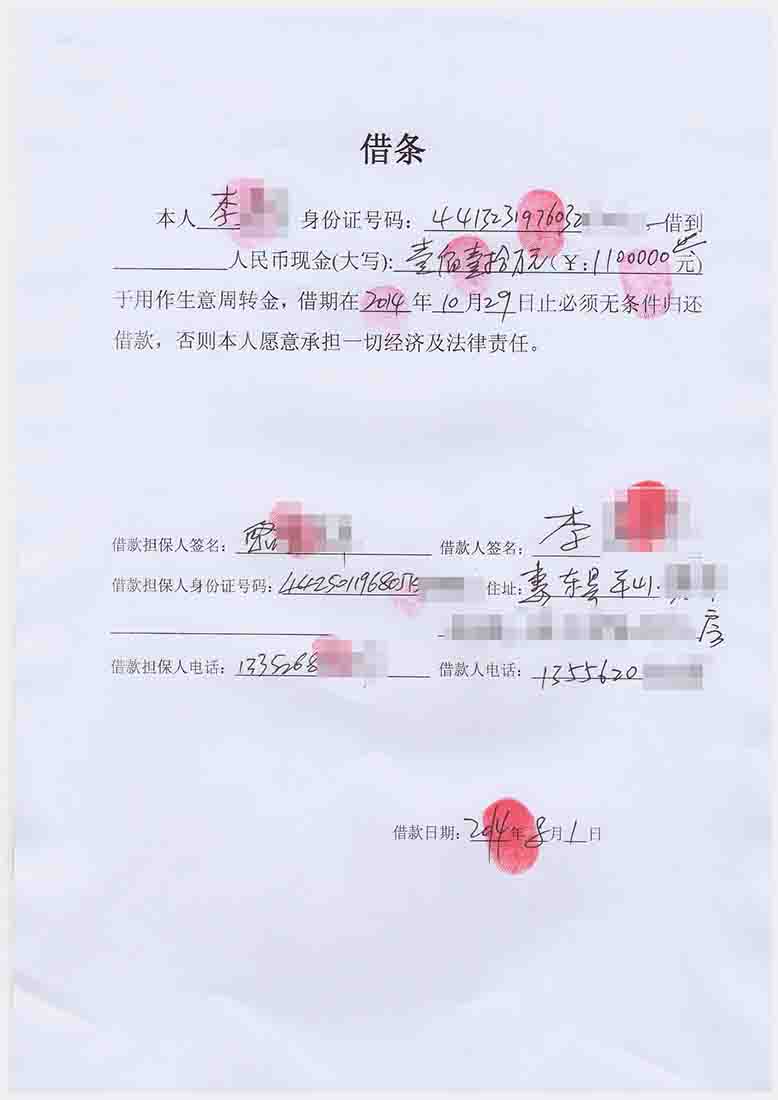 借条
本人 李 身份证号码：4413231976032 借到
人民币现金(大写)：壹佰壹拾万元(￥：1100000元)
于用作生意周转金，借期在2014年10月29日止必须无条件归还
借款，否则本人愿意承担一切经济及法律责任。
借款担保人签名： 借款人签名：李
借款担保人身份证号码：442501196805 住址：惠东县平山
房
借款担保人电话：1335268 借款人电话：1355620
借款日期：2014年8月1日